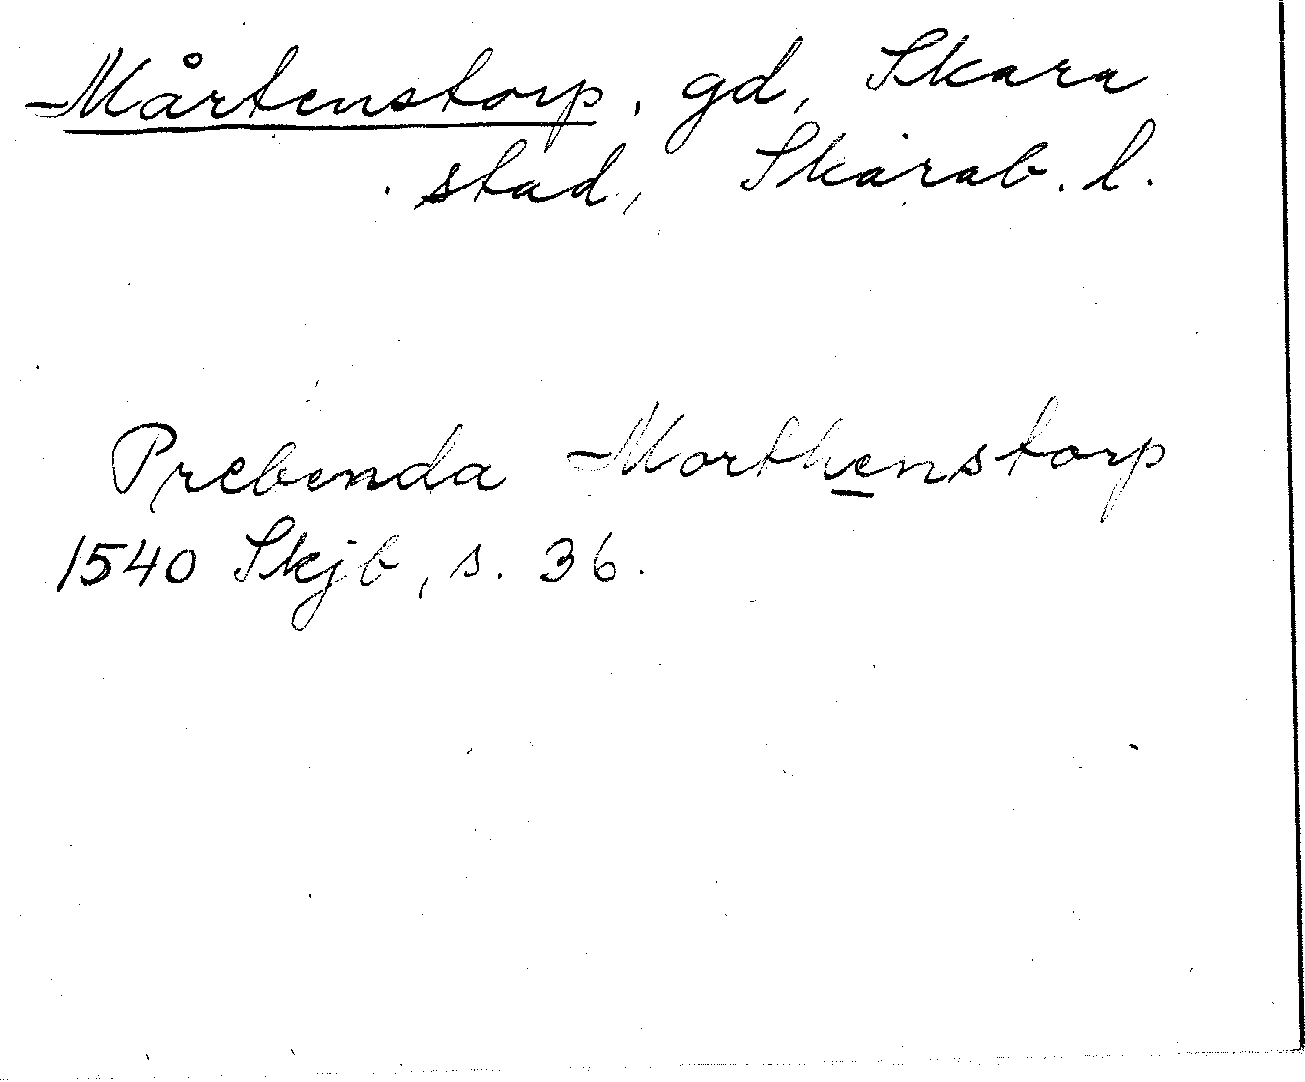 Mårtenstorp, gd, Skara
stad, Skarab. l.
Prebenda Morthenstorp
1540 Skjb, s. 36.